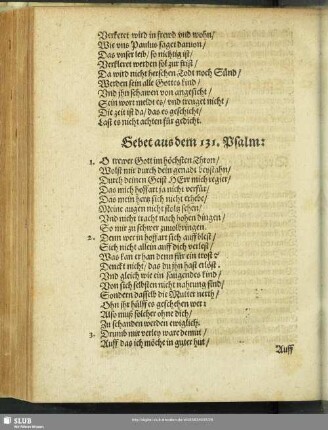 Verkeret wird in frewd vnd wohn/
Wie vns Paulus saget daruon/
Das vnser leib/ so nichtig ist/
Verkleret werden sol zur frist/
Da wird nicht herschen Todt noch Sünd/
Werden sein alle Gottes kind/
Vnd jhn schawen von angesicht/
Sein wort meldt es/ vnd treuget nicht/
Die zeit ist da/ das es geschicht/
Last es nicht achten für gedicht.
Gebet aus dem 131. Psalm:
1. O trewer Gott im höchsten Thron/
Wolst mir durch dein genad beystahn/
Durch deinen Geist HErr mich regier/
Das mich hoffart ja nicht verfür/
Das mein hertz sich nicht erhebe/
Meine augen nicht stoltz sehen/
Vnd nicht tracht nach hohen dingen/
So mir zu schwer zuuolbringen.
2. Denn wer in hoffart sich auffblest/
Sich nicht allein auff dich verlest/
Was kan er han denn für ein trost?
Denckt nicht/ das du jhn hast erlöst.
Vnd gleich wie ein saugendes kind/
Von sich selbsten nicht nahrung find/
Sondern dasselb die Mutter nerth/
Ohn jhr hülff es geschehen wer:
Also muß solcher ohne dich/
Zu schanden werden ewiglich.
3. Drumb mir verley ware demut/
Auff das ich möcht in guter hut/
Auff
SLUB
Wir führen Wissen.